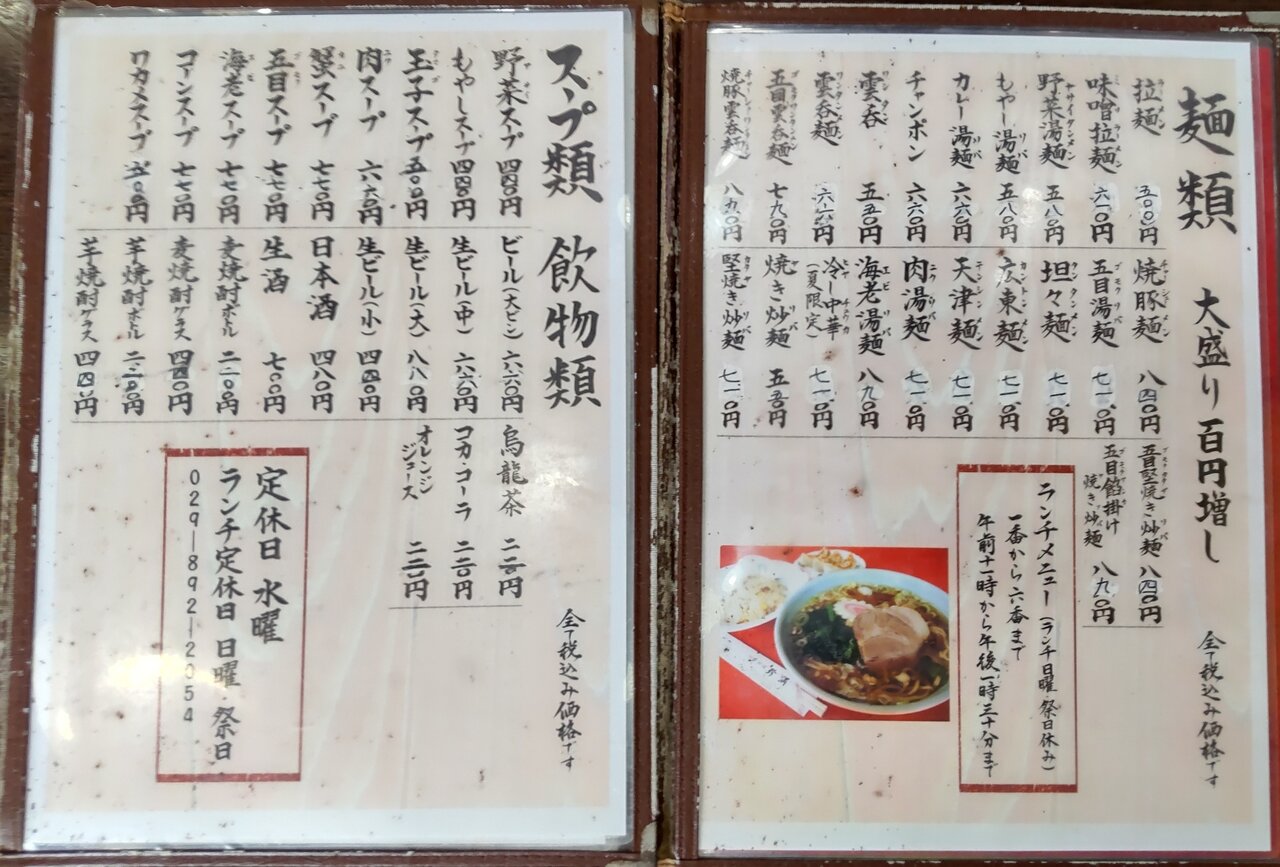 麺類 大盛り百円増し 全て税込み価格です
拉麺 五〇〇円
味噌拉麺
野菜湯麺 五八〇円
もやし湯麺 五八〇円
カレー湯麺 六六〇円
チャンポン 六六〇円
雲呑 五五〇円
雲呑麺
五目雲呑麺 七九〇円
焼豚雲呑麺 八九〇円
焼豚麺 八四〇円
五目湯麺 七一〇円
坦々麺 七一〇円
広東麺 七一〇円
天津麺 七一〇円
肉湯麺 七一〇円
海老湯麺 八九〇円
冷し中華 七一〇円
(夏限定)
焼き炒麺 五五〇円
堅焼き炒麺 七一〇円
五目堅焼き炒麺 八四〇円
五目餡掛け
焼き炒麺 八九〇円
ランチメニュー(ランチ日曜・祭日休み)
一番から六番まで
午前十一時から午後一時三十分まで
スープ類 飲物類 全て税込み価格です
野菜スープ 四四〇円
もやしスープ 四四〇円
玉子スープ 五五〇円
肉スープ 六六〇円
蟹スープ 七七〇円
五目スープ 七七〇円
海老スープ 七七〇円
コーンスープ 七七〇円
ワカメスープ 五五〇円
ビール(大ビン) 六六〇円
生ビール(中) 六六〇円
生ビール(大) 八八〇円
生ビール(小) 四四〇円
日本酒 四八〇円
生酒 七〇〇円
麦焼酎ボトル
麦焼酎グラス 四四〇円
芋焼酎ボトル
芋焼酎グラス 四四〇円
烏龍茶 二二〇円
コカ・コーラ 二二〇円
オレンジ
ジュース 二二〇円
定休日 水曜
ランチ定休日 日曜・祭日
029-892-2054